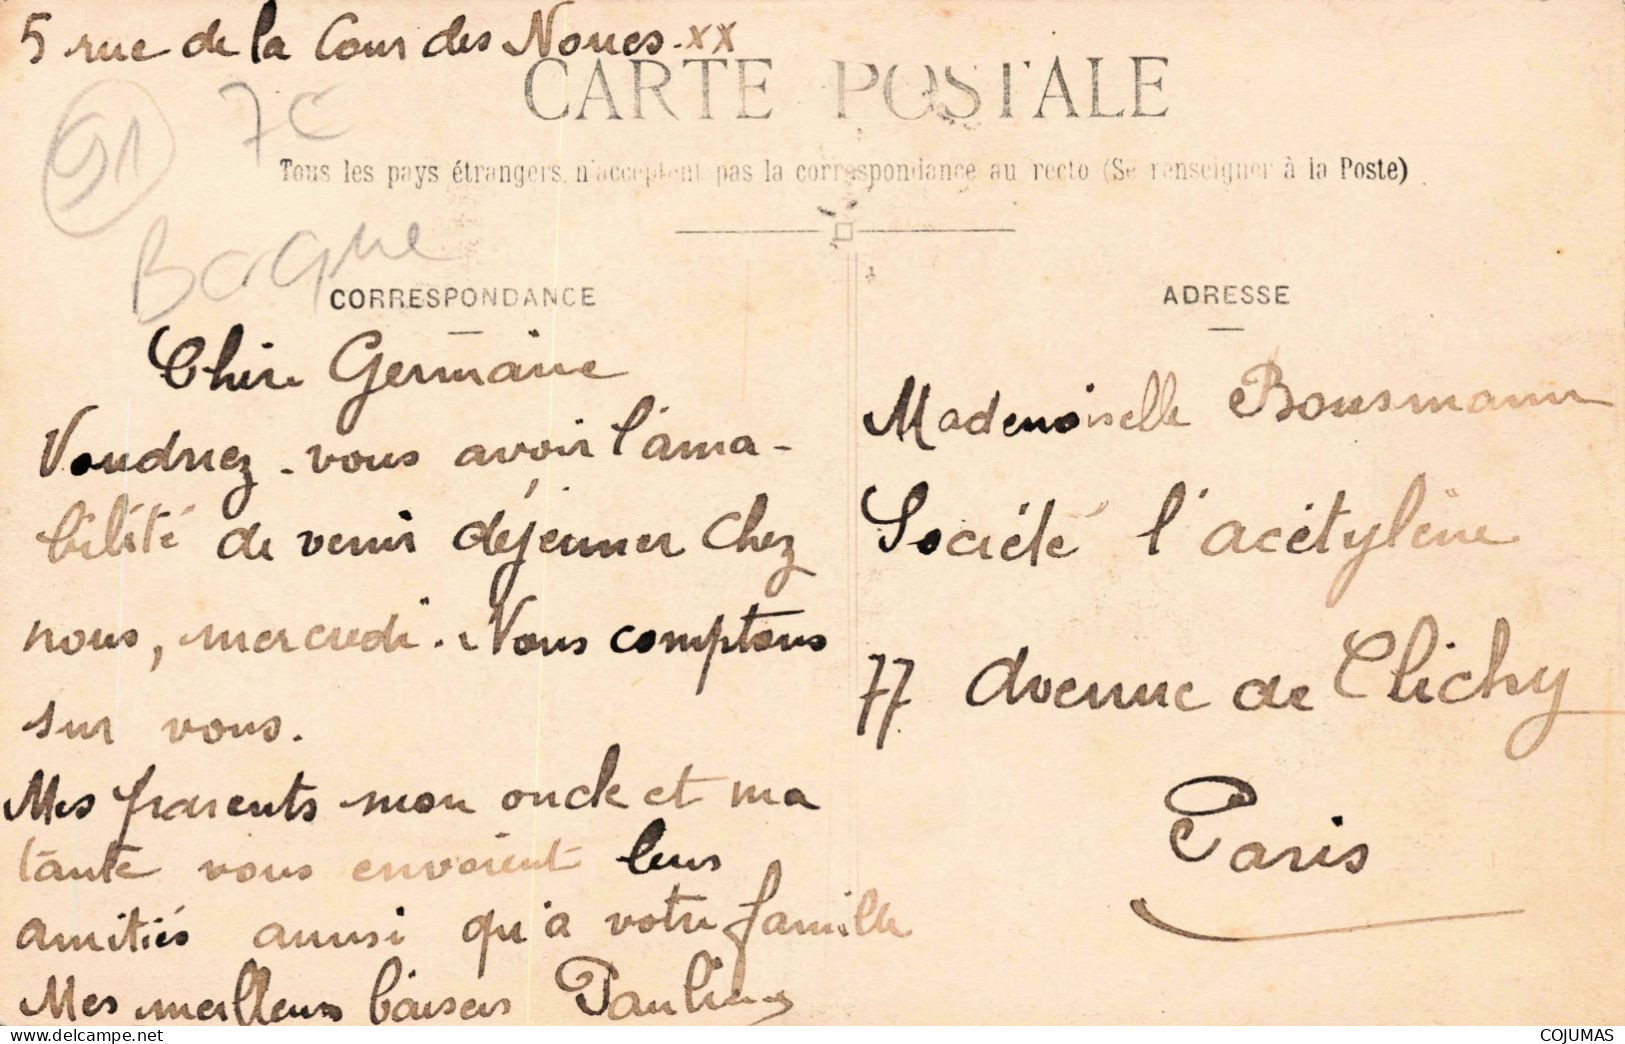 5 rue de la Cour des Noues. xx
CARTE POSTALE
91 7 €
Tous les pays étrangers n'acceptent pas la correspondance au recto (Se renseigner à la Poste)
CORRESPONDANCE
Chère Germaine
Voudriez-vous avoir l'ama-
bilité de venir déjeuner chez
nous, mercredi. Nous comptons
sur vous.
Mes parents mon oncle et ma
tante vous envoient leurs
amitiés aussi qu'à votre famille
Mes meilleurs baisers Pauline
ADRESSE
Mademoiselle Bousmann
Société l'acétylène
77 Avenue de Clichy
Paris
COJUMAS